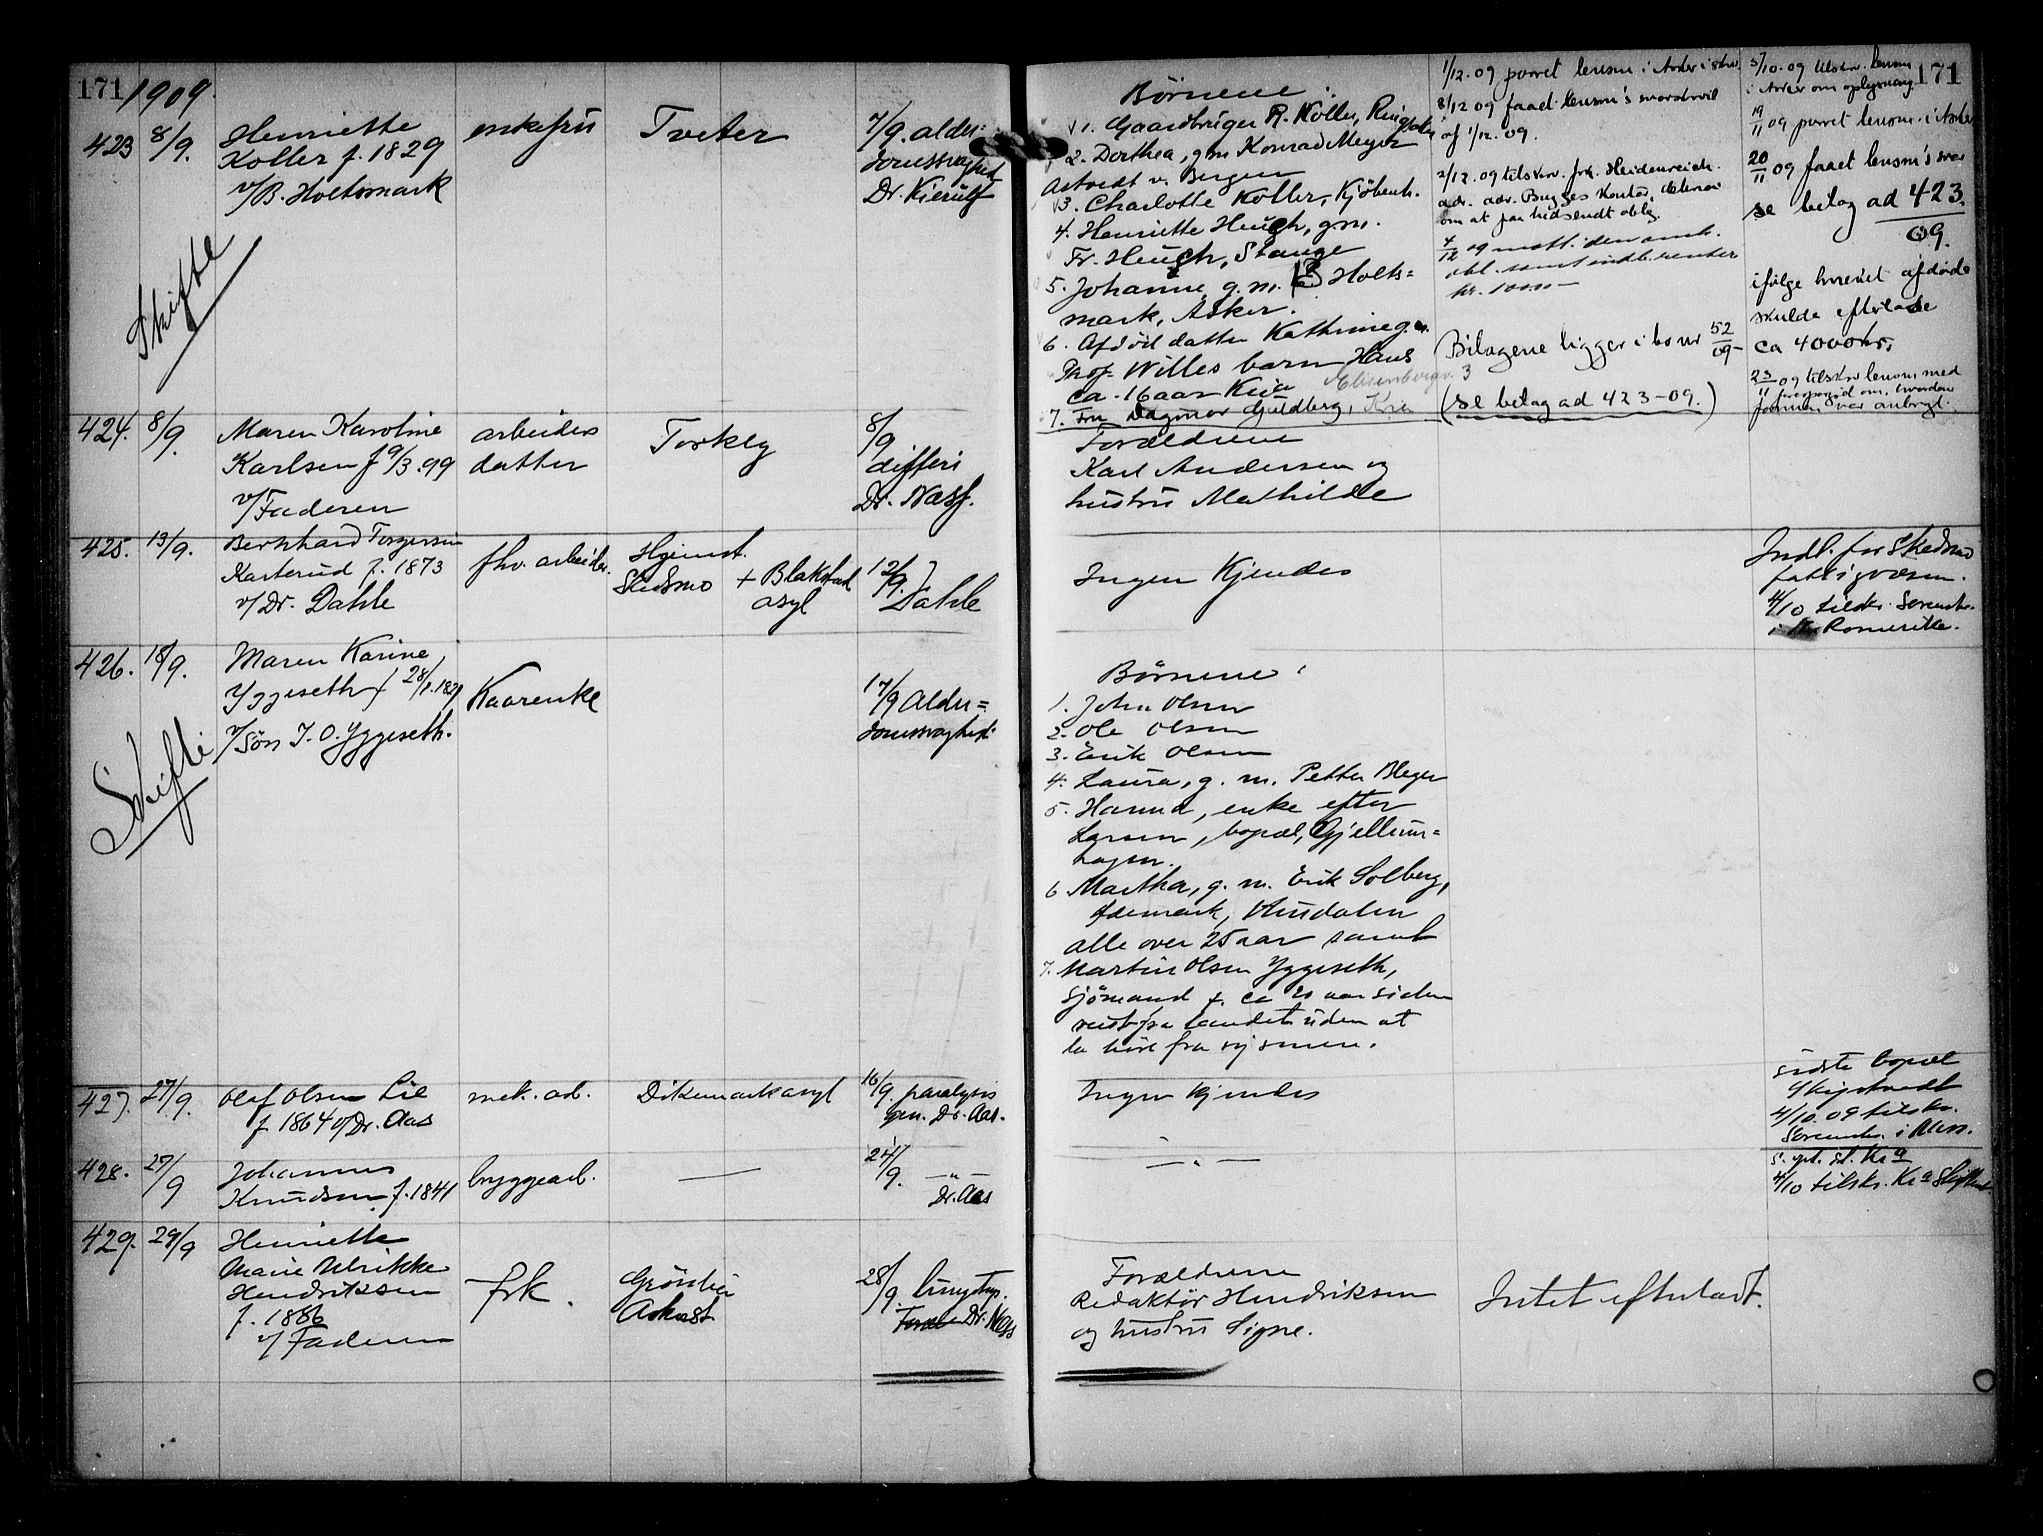 171
1909.
423
8/9.
Henriette
Koller f. 1829
v/B. Holtsmark
enkefru
Tveter
7/9. alder=
domssvaghed
Dr. Kierulf
Skifte
424.
8/9.
Maren Karoline
Karlsen f 9/3.99
v/Faderen
arbeider
datter
8/9
difteri
Dr. Næss.
425.
13/9.
Bernhard Torgersen
Karterud f. 1873
v/Dr. Dahle
fhv. arbeider
Skedsmo
+ Blakstad
asyl
12/9.
Dahle
426.
18/9.
Maren Karine
Yggeseth f 28/1.1821
v/Søn J. O. Yggeseth.
Kaarenke
17/9 Alder=
domssvaghed.
Skifte
427.
27/9.
Olaf Olsen Lie
f. 1864 v/Dr. Aas
mek. arb.
Dikemark asyl
16/9. paralysis
gen. Dr. Aas.
428.
27/9
Johannes
Knudsen f. 1841
bryggearb.
—
24/9.
—"—
Dr. Aas
429.
29/9
Henriette
Marie Ulrikke
Hendriksen
f. 1886
v/ Faderen
frk.
Grönlia
28/9.
Dr. Næss
171
Börnene:
1. Gaardbruger P. Koller,
2. Dorthea, gm Konrad Meyer
Astvedt v. Bergen
3. Charlotte Koller, Kjöbenh.
4. Henriette Heuch, gm.
Fr. Heuch, Stange
5. Johanne g. m. B Holts=
mark, Asker.
6. Afdöd datter Kathrine g. m.
Prof. Willes barn Hans
ca. 16 aar Kria
7. Fru Dagmar Guldberg, Kria
1/12.09 purret lensm. i Asker i skr.
8/12 09 faaet lensm's svarskriv
af 1/12.09.
2/12.09 tilskr. frk. Heidenreich.
adr. adv. Bugges Kontor,
om at faa hidsendt oblg.
4/12 09 mott. den omh.
obl. samt indb. renter
kr. 10.00 –
Bilagene ligger i bo nr 52/09–
(se bilag ad 423–09.)
5/10.09 tilskr. lensm
i Asker om oplysning
19/11 09 purret lensm. i Asker
20/11 09 faaet lensm's svar
se bilag ad 423.
09.
ifølge hvilket afdöde
skulde efterlade
ca 4000 kr.
23/11 09 tilskr lensm med
forespørsel om, hvordan
formuen var anbragt.
Forældrene
Karl Andersen og
hustru Mathilde
Ingen Kjendes
Indl. for Skedsmo
fattigvæsen.
4/10 tilskr. Sorenskr.
Romerike.
Börnene:
1. John Olsen
2. Ole Olsen
3. Erik Olsen
4. Laura, g. m. Petter Bleger
5. Hanna, enke efter
Larsen, bopæl, Gjellum=
hagen.
6 Martha, g. m. Erik Solberg,
alle over 25 aar samt
7. Martin Olsen Yggeseth,
Sjömand f. ca 20 aar siden
reist fra landet uden at
la höre fra sig senere.
Ingen Kjendes
sidste bopæl
4/10.09 tilskr.
Sorenskr. i
—"—
4/10 tilskr. Kra Skifteret
Forældrene
Redaktör Hendriksen
og hustru Signe.
Intet efterladt.